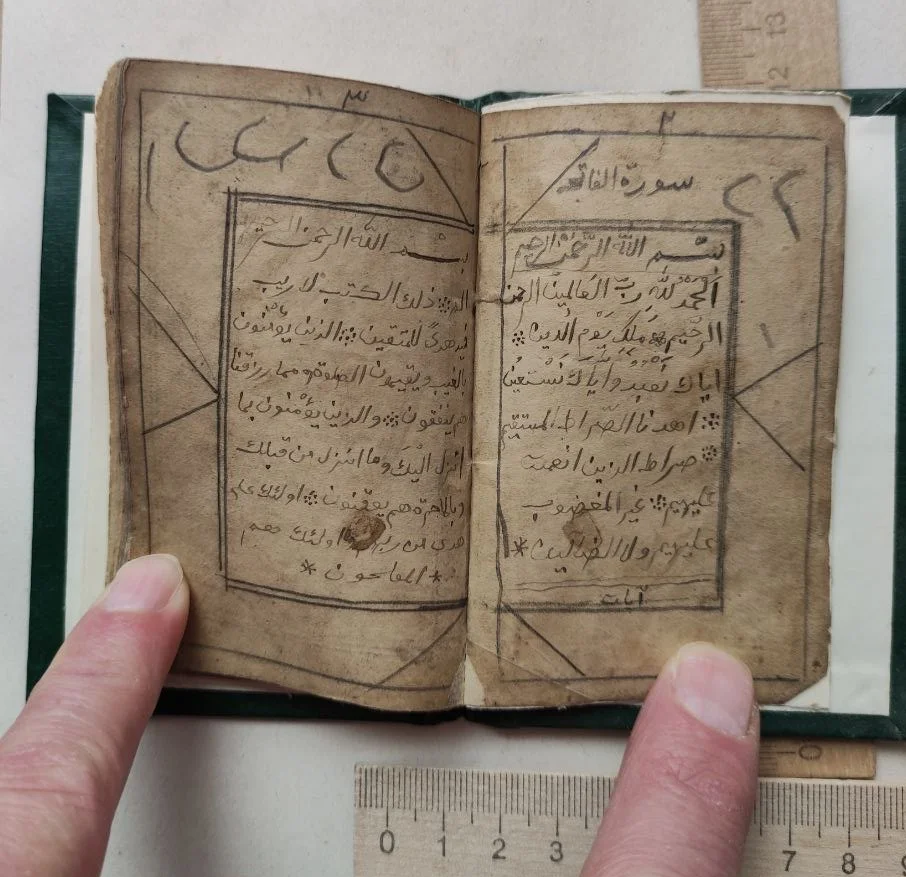 ٢
سورة الفاتحة
٢٢
بسم الله الرحمن الرحيم
الحمد لله رب العالمين الرحمن
الرحيم ملك يوم الدين
اياك نعبد واياك نستعين
اهدنا الصراط المستقيم
صراط الذين انعمت
عليهم غير المغضوب
عليهم ولا الضالين *
آيات
٣
بسم الله الرحمن الرحيم
الم ذلك الكتب لا ريب
فيه هدىً للمتقين الذين يؤمنون
بالغيب ويقيمون الصلوة ومما رزقنا
هم ينفقون والذين يؤمنون بما
انزل اليك وما انزل من قبلك
وبالاخرة هم يوقنون اولئك على
هدى من ربهم واولئك هم
* المفلحون *
13
12
0
0 1 2 3 7 8